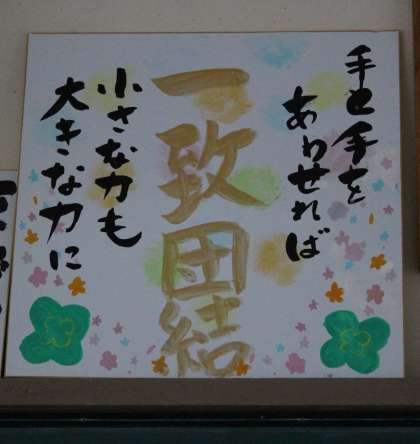 手と手を
あわせれば
一致団結
小さな力も
大きな力に